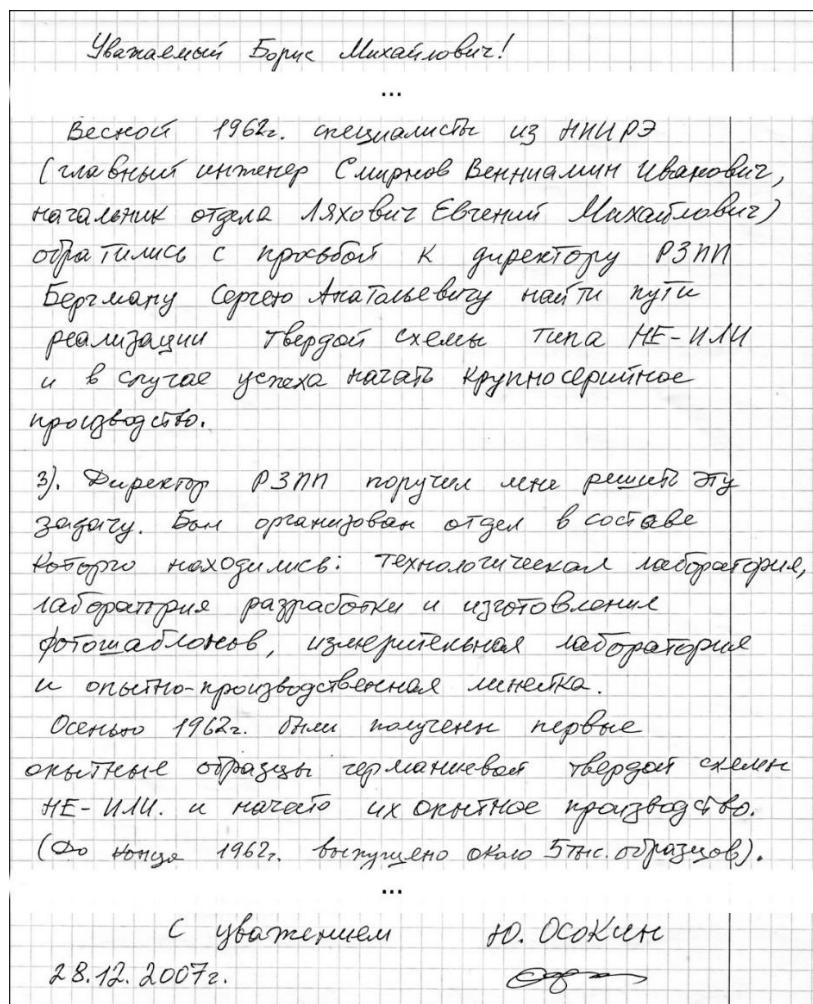 Уважаемый Борис Михайлович!
...
Весной 1962г. специалисты из НИИРЭ
(главный инженер Смирнов Венниамин Иванович,
начальник отдела Ляхович Евгений Михайлович)
обратились с просьбой к директору РЗПП
Бергману Сергею Анатольевичу найти пути
реализации твердой схемы типа НЕ-ИЛИ
и в случае успеха начать крупносерийное
производство.
3). Директор РЗПП поручил мне решить эту
задачу. Был организован отдел в составе
которго находились: технологическая лаборатория,
лаборатория разработки и изготовления
фотошаблонов, измерительная лаборатория
и опытно-производственная линейка.
Осенью 1962г. были полученны первые
опытные образцы германиевой твердой схемы
НЕ-ИЛИ. и начато их опытное производство.
(До конца 1962г. выпущено около 5тыс. образцов).
...
С уважением Ю. Осокин
28.12.2007г.